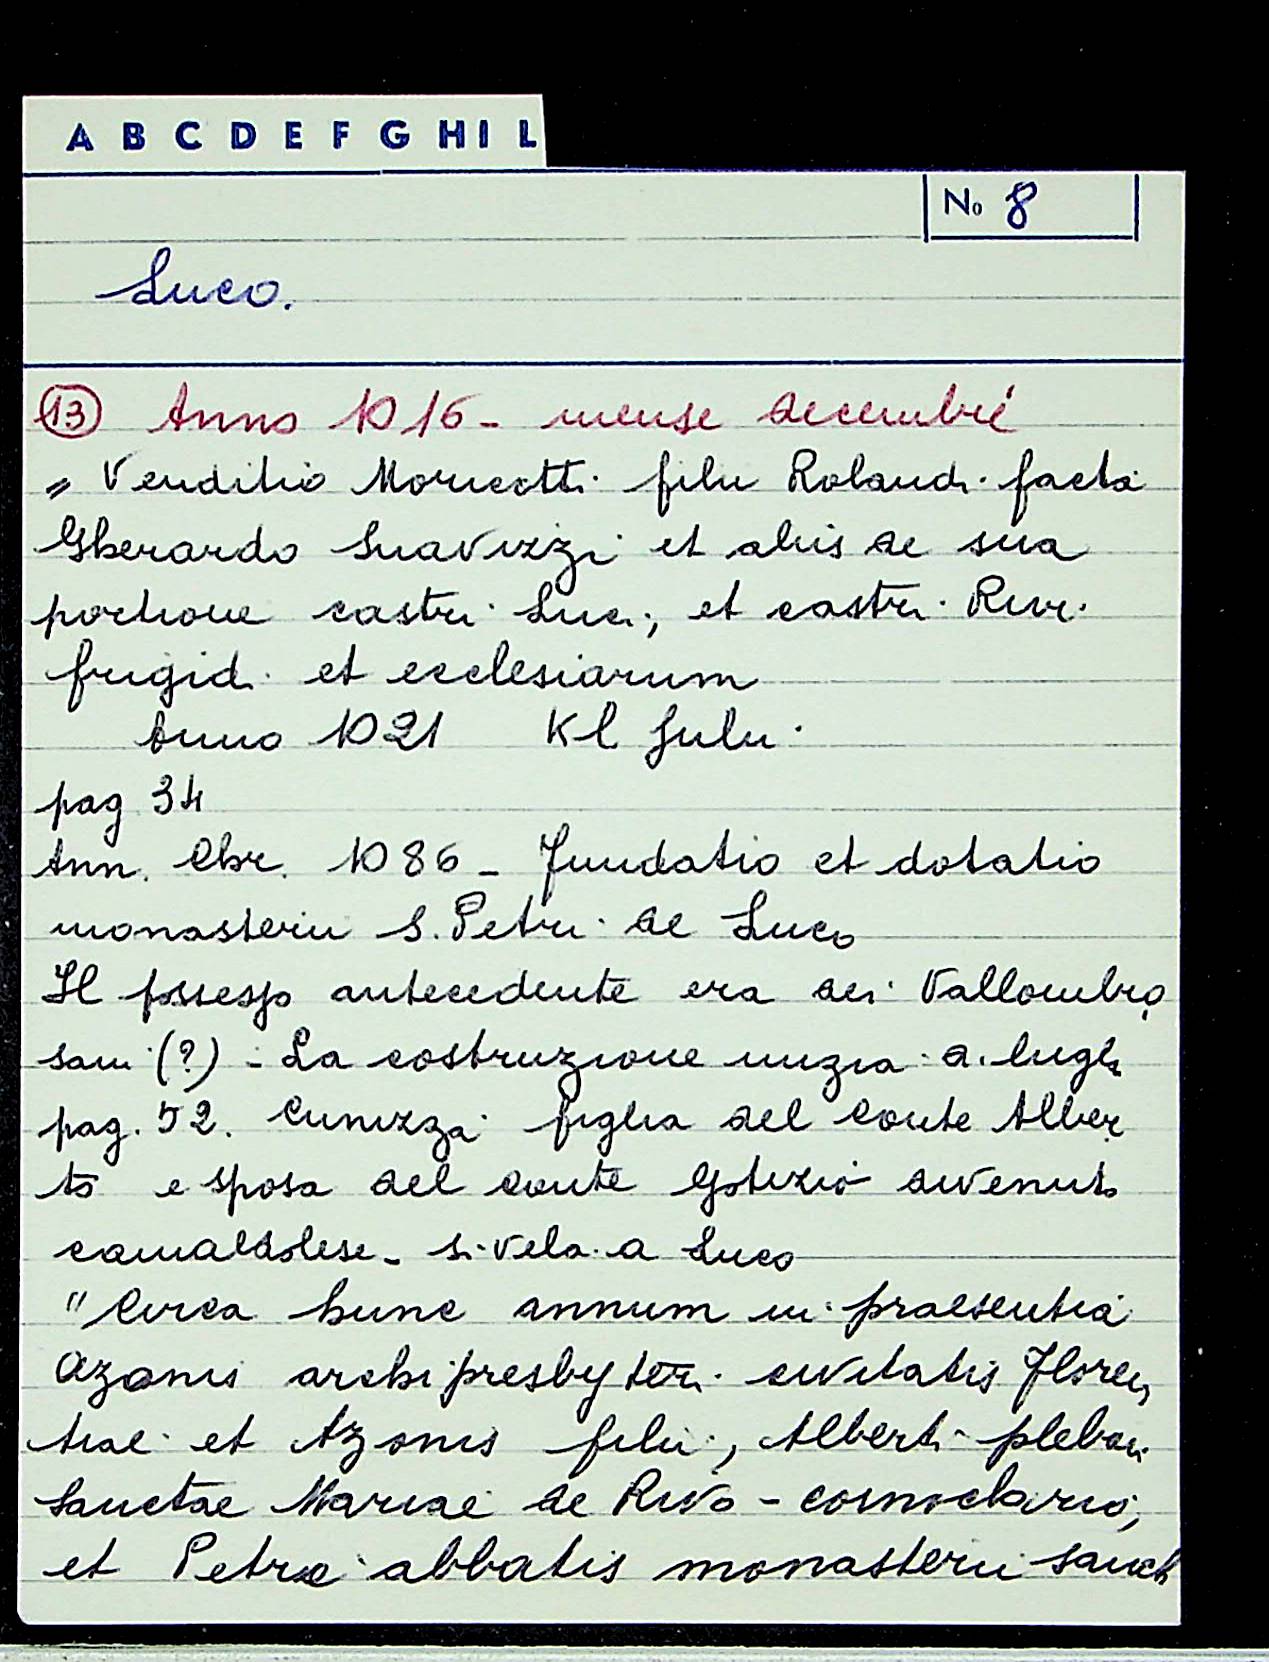 A B C D E F G H I L
No 8
Luco.
13 Anno 1016 - mense decembri
" Venditio Moricotti filii Rolandi facta
Gherardo Suavizzi et aliis de sua
portione castri Luci, et castri Rivi
frigidi et ecclesiarum
Anno 1021 Kl Julii
pag 34
Ann. Chr. 1086 - Fundatio et dotatio
monasterii S. Petri de Luco
Il possesso antecedente era dei Vallombro
sani (?) - La costruzione inizia a lugl.
pag. 52. Cunizza figlia del conte Alber
to e sposa del conte Gotizio divenuto
camaldolese - si vela a Luco
"Circa hunc annum in praesentia
Azonis archipresbyteri civitatis Floren
tiae et Azonis filii, Alberti plebani
Sanctae Mariae de Rivo-cornoclario,
et Petri abbatis monasterii Sancti